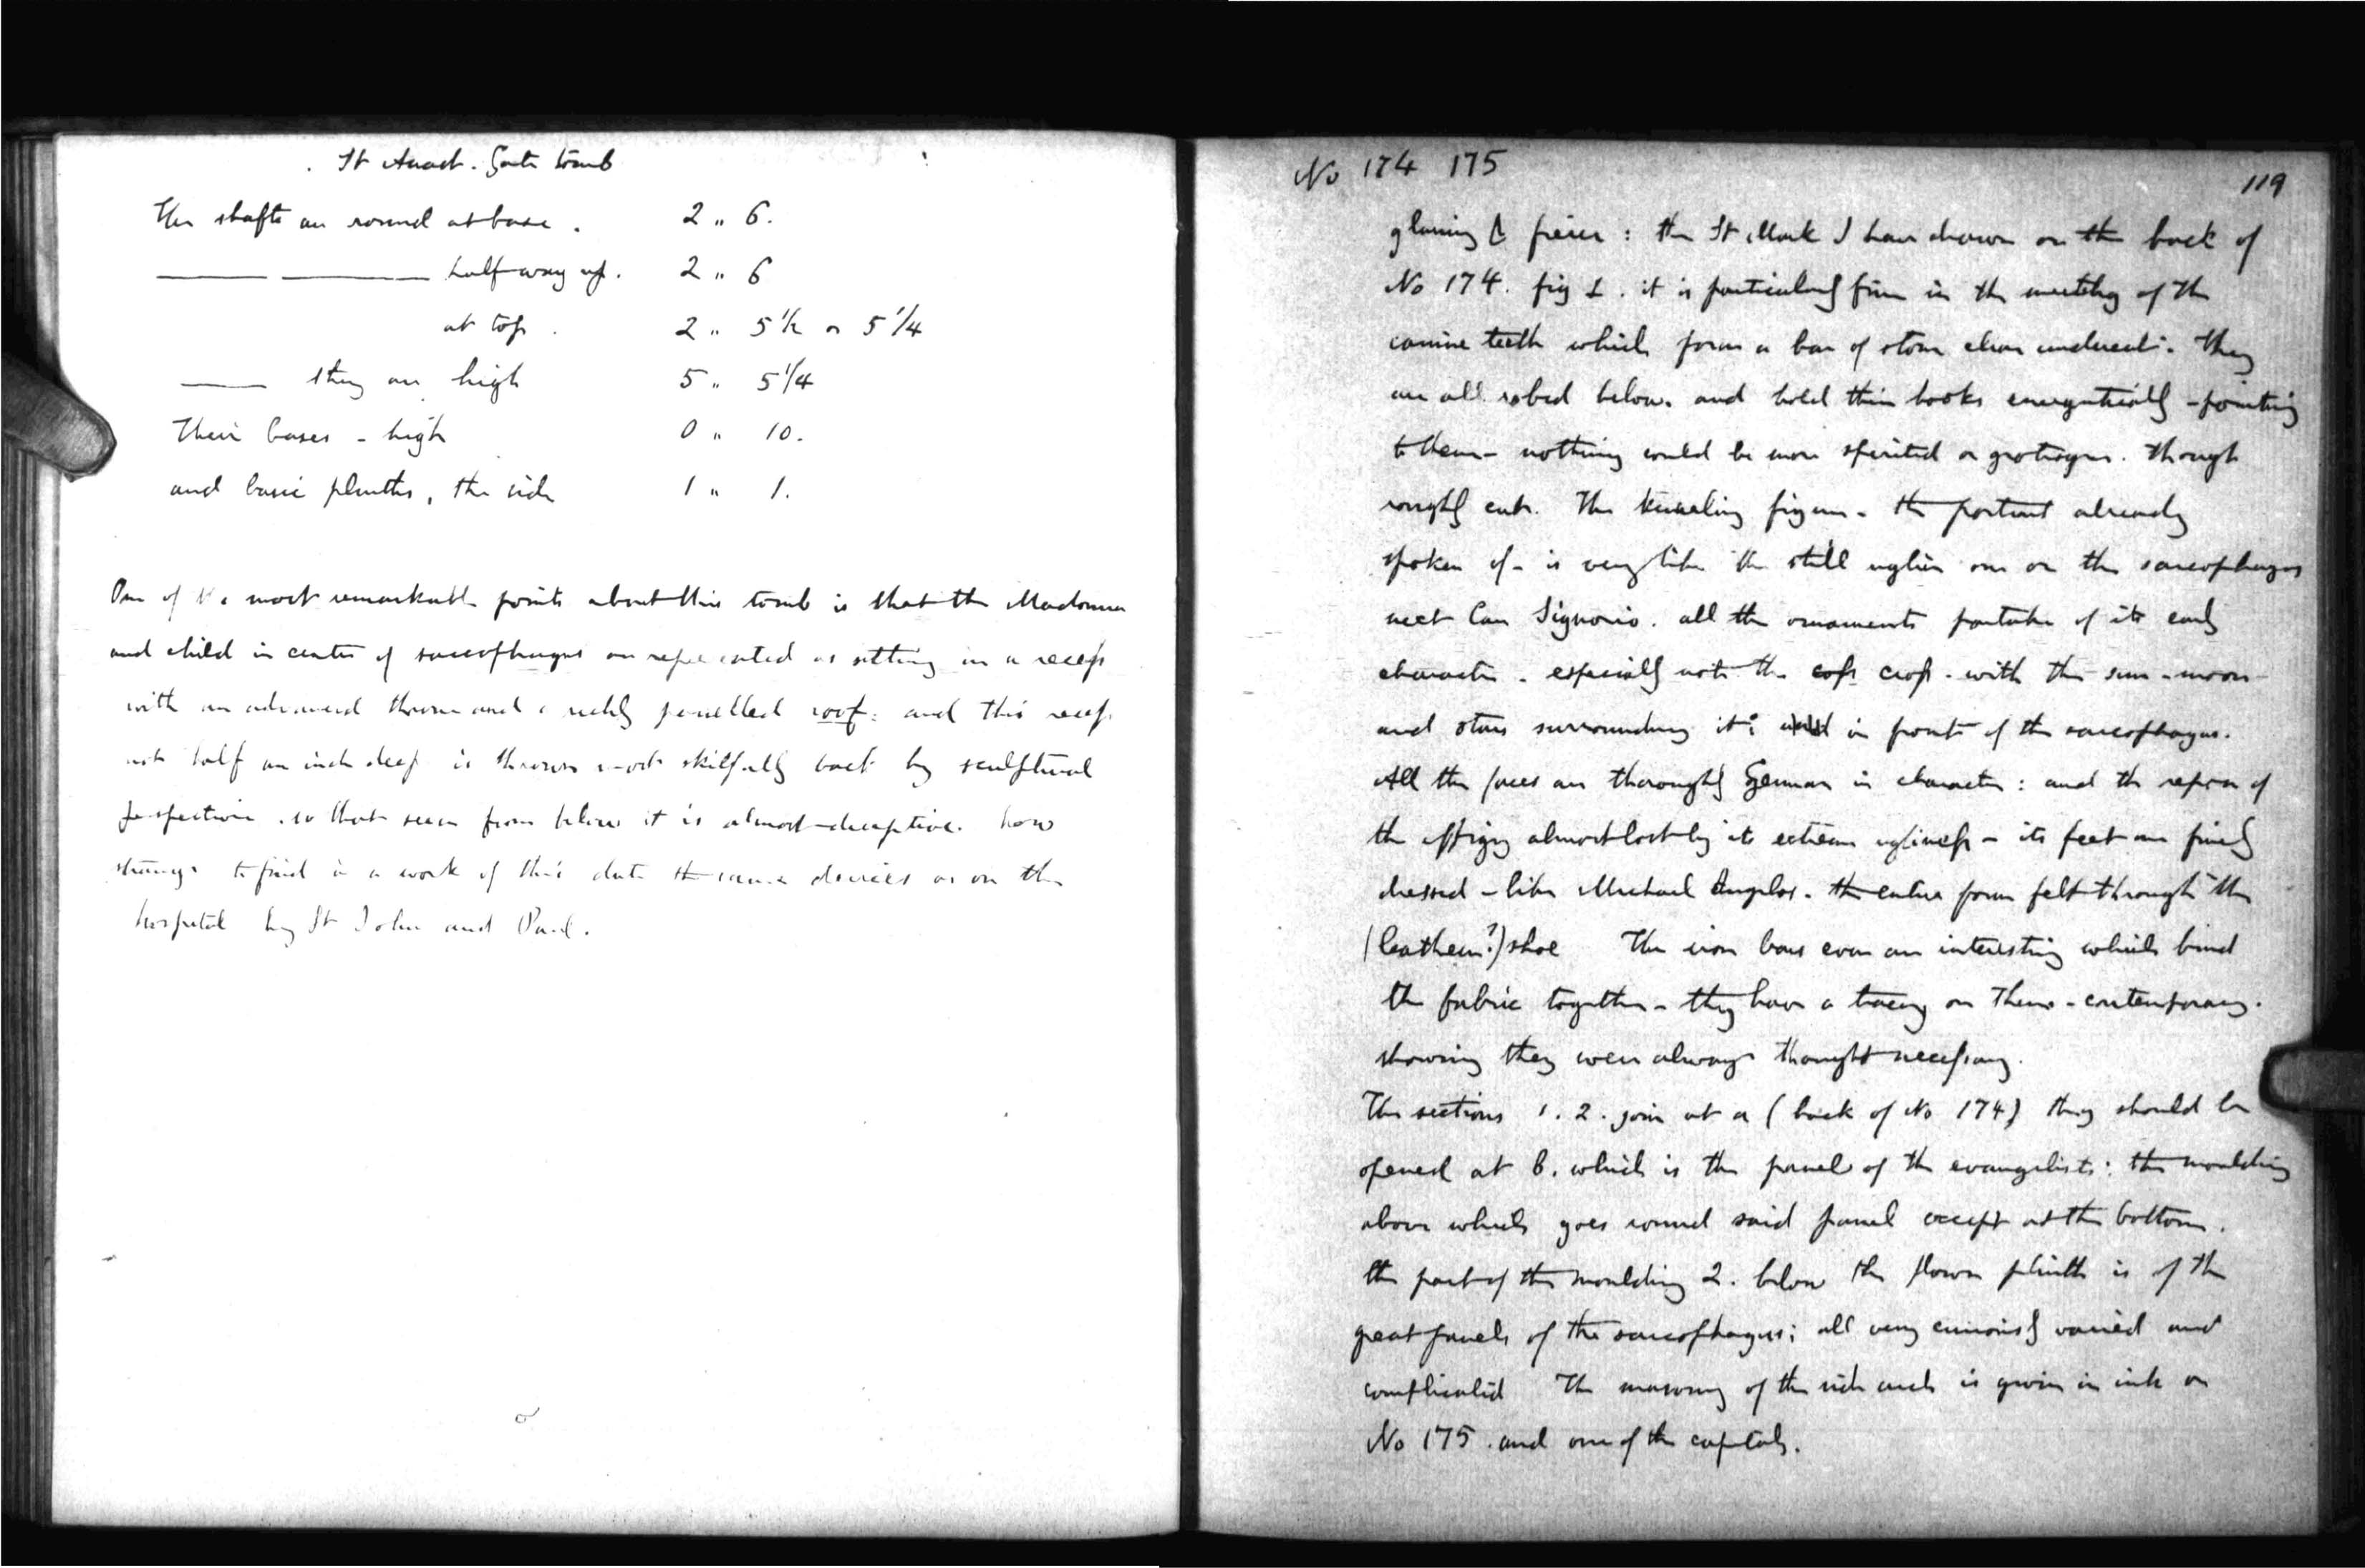 St Anast. Gate tomb
The shafts are round at base . 2 " 6.
half way up. 2 " 6
at top . 2 " 5 1/2 or 5 1/4
they are high 5 " 5 1/4
Their bases - high 0 " 10.
and basic plinths, the side 1 " 1.
One of the most remarkable points about this tomb is that the Madonna
and child in center of sarcophagus are represented as sitting in a recess
with an advanced throne and a richly panelled roof: and this recess
not half an inch deep is thrown most skilfully back by sculptural
perspective . so that seen from below it is almost deceptive. how
strange to find in a work of this date the same devices as on the
hospital by St John and Paul.
No 174 175
119
glaring & fierce : the St Mark I have drawn on the back of
No 174. fig 1. it is particularly fine in the meeting of the
canine teeth which form a bar of stone clear underneath. They
are all robed below. and hold their books energetically - pointing
to them - nothing could be more spirited or grotesque. though
roughly cut. The kneeling figure - the portrait already
spoken of - is very like the still uglier one on the sarcophagus
next Can Signorio. all the ornaments partake of its early
character - especially note the cross - with the sun - moon
and stars surrounding it: in front of the sarcophagus.
All the faces are thoroughly German in character: and the repose of
the effigy almost lost by its extreme ugliness - its feet are finely
dressed - like Michael Angelos. the entire form felt through the
(leathern?) shoe The iron bars even are interesting which bind
the fabric together - they have a tracery on them - contemporary.
showing they were always thought necessary.
The sections 1. 2. join at a (back of No 174) they should be
opened at b. which is the panel of the evangelists: the moulding
above which goes round said panel except at the bottom.
the part of the moulding 2. below the flower plinth is of the
great panels of the sarcophagus; all very curiously varied and
complicated The masonry of the side arch is given in ink on
No 175 . and one of the capitals.